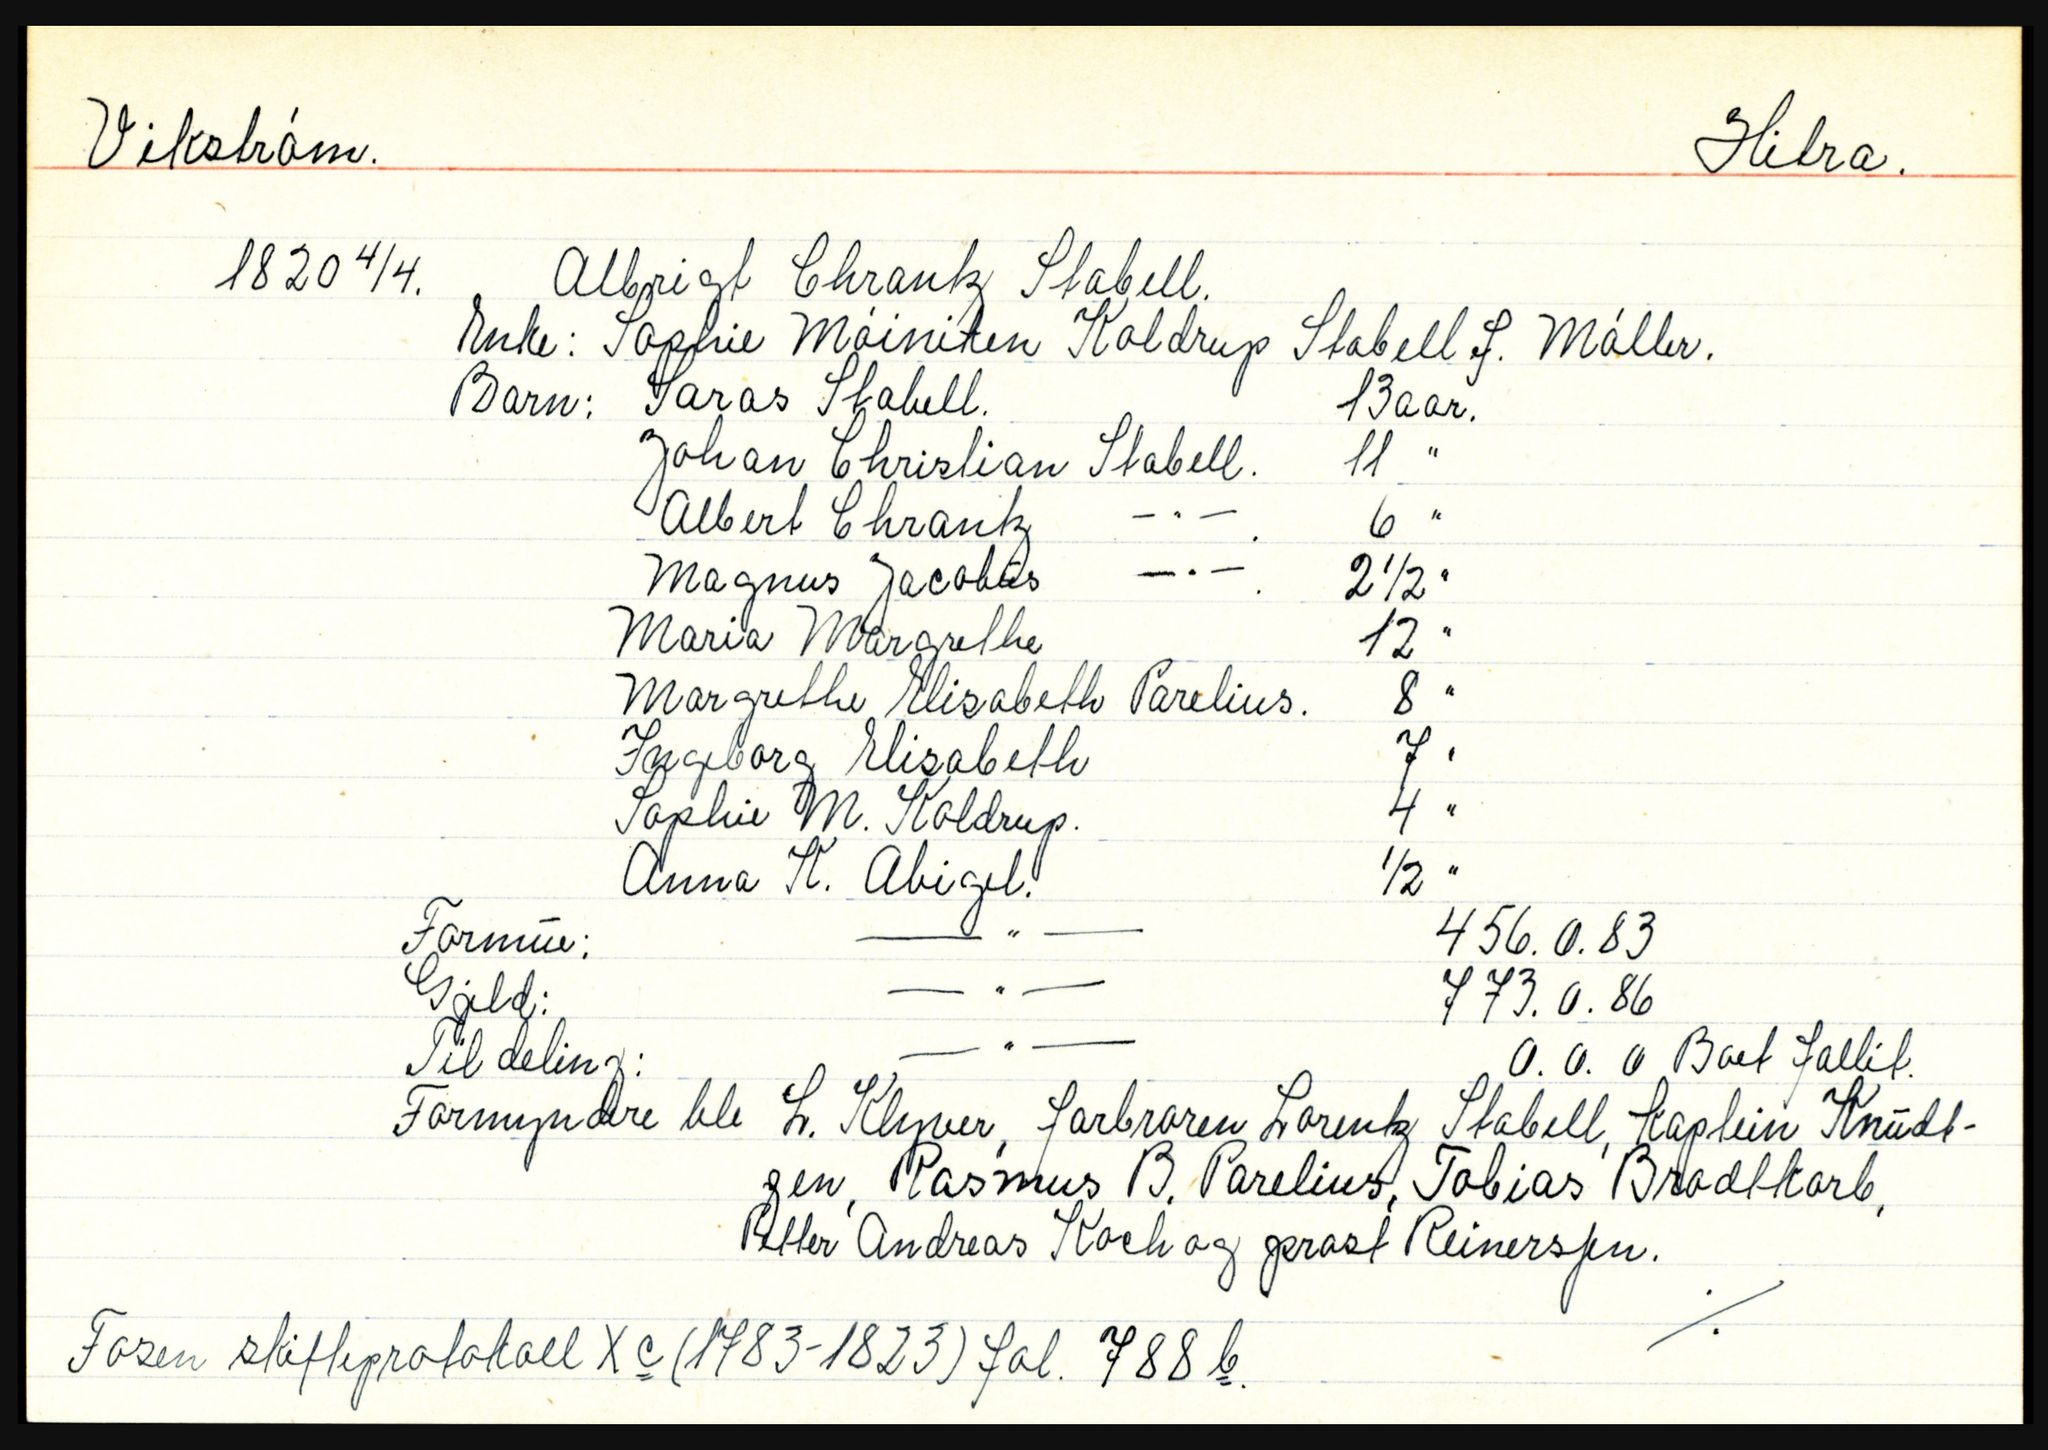 Vikstróm. Hitra.
1820 4/4. Albrigt Chrantz Stabell.
Enke: Sophie Móiniken Koldrup Stabell f. Móller.
Barn: Saras Stabell. 13 aar.
Johan Christian Stabell. 11 "
Albert Chrantz —"—. 6 "
Magnus Jacobus —"—. 2 1/2 "
Maria Margrethe 12 "
Margrethe Elisabeth Parelius. 8 "
Ingeborg Elisabeth 7 "
Sophie M. Koldrup. 4 "
Anna K. Abigel. 1/2 "
Formūe: —"— 456. 0. 83
Gjeld: —"— 773. 0. 86
Til deling: —"— 0. 0. 0 Boet fallit.
Formyndere ble L. Klyver, farbroren Lorentz Stabell, kaptein Knūdt-
zen, Rasmus B. Parelius, Tobias Brodtkorb,
Petter Andreas Koch og prost Reinerssen.
./.
Fosen skifteprotokoll X c (1783-1823) fol. 788 b.